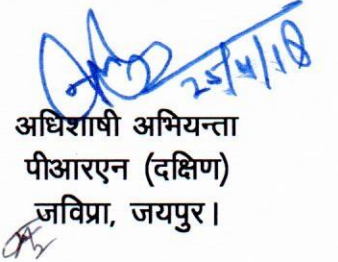 25/4/18
अधिशाषी अभियन्ता
पीआरएन (दक्षिण)
जविप्रा, जयपुर।